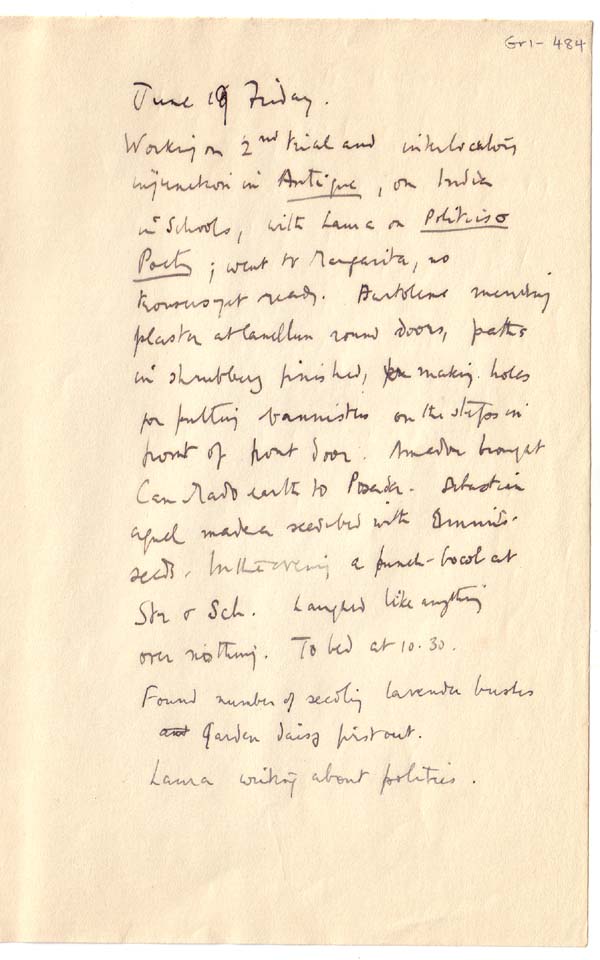 Gr1-484
June 19 Friday.
Working on 2nd trial and interlocutory
injunction in Antigua, on India
in Schools, with Laura on Politics &
Poetry; went to Margarita, no
trousers yet ready. Bartolome mending
plaster at Canellun round doors, paths
in shrubbery finished, making holes
for putting bannisters on the steps in
front of front door. Amador brought
earth to Posada. Sebastian
and made a seedbed with
seeds. In the evening a punch-bowl at
Sta & Sch. Laughed like anything
over nothing. To bed at 10.30.
Found number of seedling lavender bushes
and garden daisy first out.
Laura writing about politics.